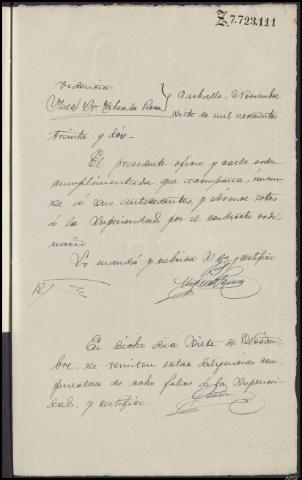 Z.7.723.111
Providencia
Juez Sr. Taboada Roca } Carballo, Noviembre
siete de mil novecientos
treinta y dós.-
El precedente oficio y carta orden
cumplimentada que acompaña, únanse
á sus antecedentes, y elévense estos
á la Superioridad por el conducto ordi-
nario.
Lo mandó y rubrica S.Sª, certifico
En dicho dia siete de Noviem-
bre, se remiten estas diligencias com-
puestas de ocho folios á la Superiori-
dad, y certifico.